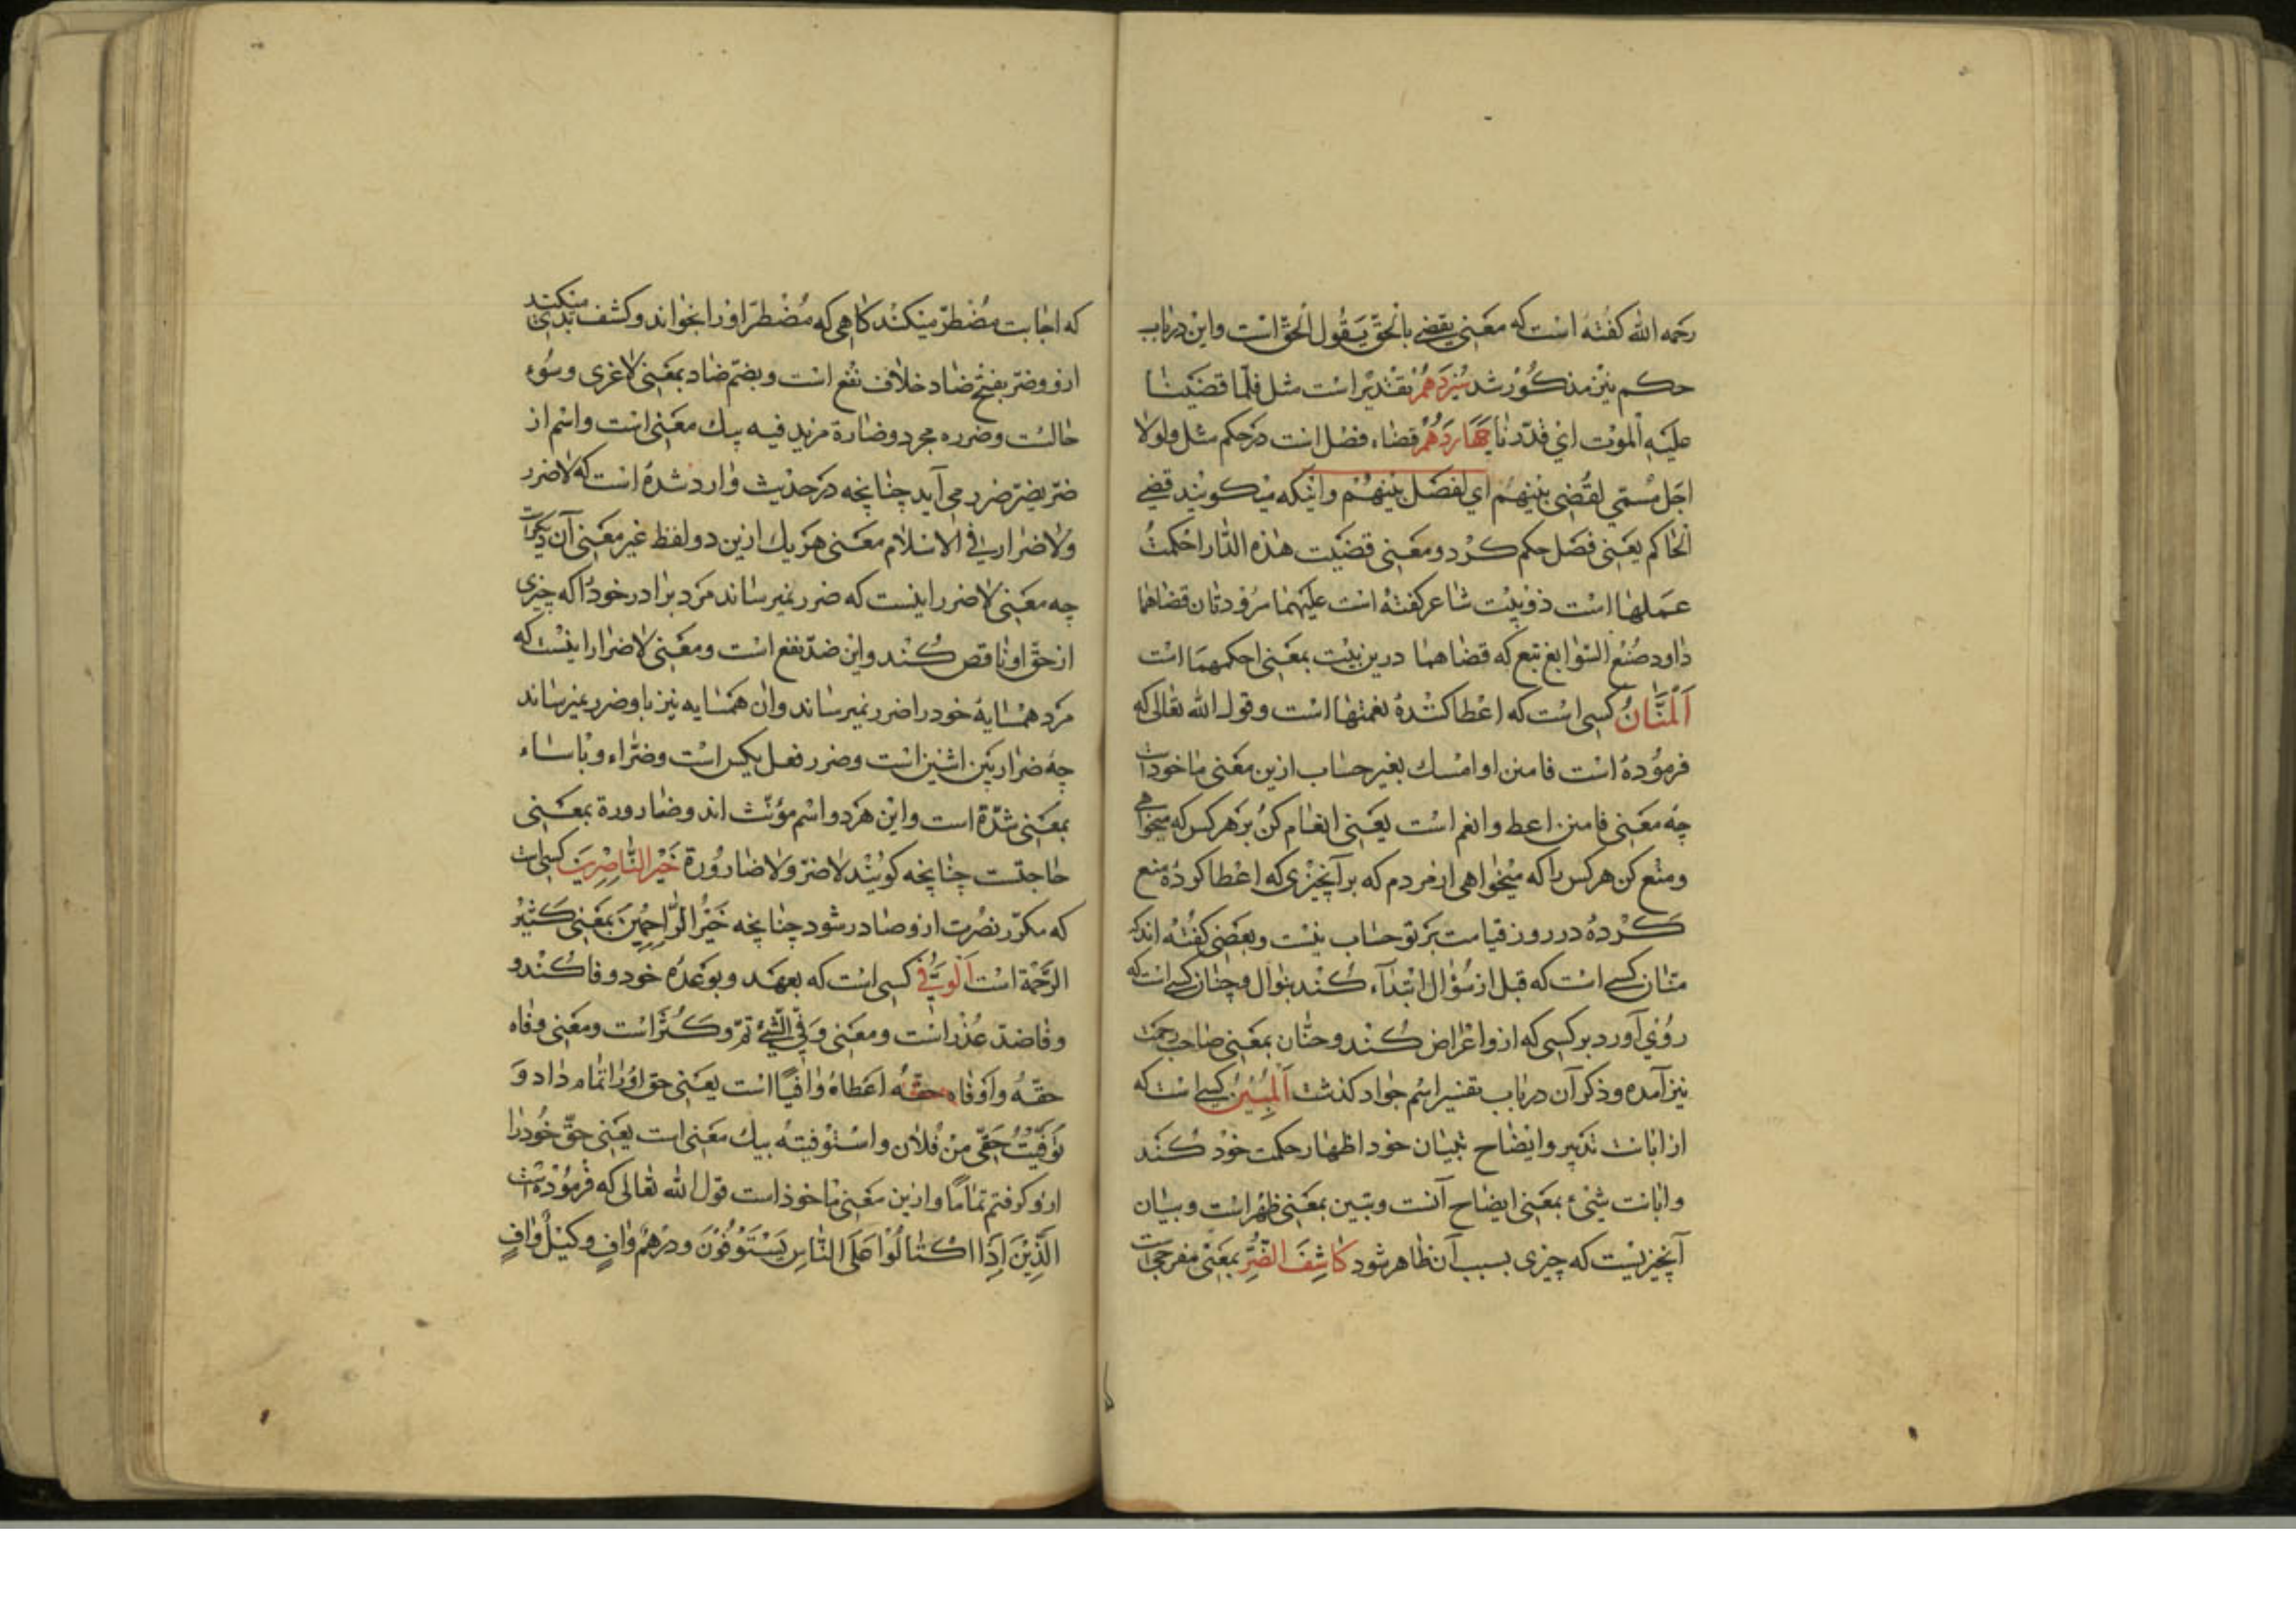 رحمه الله کفته است که معنی یقضی بالحق یقول الحق است واین در باب
حکم نیز مذکور شد سیزدهم تقدیر است مثل فلما قضینا
علیه الموت ای قدرنا چهاردهم قضاء فصل است در حکم مثل ولولا
اجل مسمی لقضی بینهم ای لفصل بینهم واینکه میکویند قضی
الحاکم یعنی فصل حکم کرد ومعنی قضیت هذه الدار احکمت
عملها است ذو بیت شاعر کفته است علیهما مسرودتان قضاهما
داود صنع السوابغ تبع که قضاهما درین بیت بمعنی احکمهما است
اَلْمَنَّانُ کسی است که اعطا کننده نعمتها است وقول الله تعالی که
فرموده است فامنن او امسک بغیر حساب ازین معنی ماخوذ است
چه معنی فامنن اعط وانعم است یعنی انعام کن بر هر کس که میخواهی
ومنع کن هر کس را که میخواهی از مردم که بر آنچیزی که اعطا کرده منع
کرده در روز قیامت بر تو حساب نیست وبعضی کفته اند که
منّان کسی است که قبل از سؤال ابتداء کند بنوال وحنان کسی است که
روی آورد بر کسی که ازو اعراض کند وحنّان بمعنی صاحب رحمت
نیز آمده وذکر آن در باب تفسیر اسم جواد کذشت اَلْمُبِیْنُ کسی است که
از ابانت تدبیر وایضاح تبیان خود اظهار حکمت خود کند
وابانت شیء بمعنی ایضاح آنست وتبین بمعنی ظهر است وبیان
آنچیزیست که چیزی بسبب آن ظاهر شود کَاشِفُ الضُّرِّ بمعنی مفرّج است
که اجابت مضطرّ میکند کاهی که مضطرّ او را بخواند وکشف بدی میکند
ازو وضرّ بفتح ضاد خلاف نفع است وبضمّ ضاد بمعنی لاغری وسوء
حالست وضرره مجرد وضارة مزید فیه بیک معنی است واسم از
ضرّ یضرّ ضرر می آید چنانچه در حدیث وارد شده است که لا ضرر
ولا ضرار فی الاسلام معنی هر یک ازین دو لفظ غیر معنی آن دیگر است
چه معنی لا ضرر اینست که ضرر نمیرساند مرد برادر خود را که چیزی
از حقّ او ناقص کند واین ضدّ نفع است ومعنی لا ضرار اینست که
مرد همسایهٔ خود را ضرر نمیرساند وان همسایه نیز باو ضرر نمیرساند
چه ضرار بین اثنین است وضرر فعل یکس است وضرّاء وباساء
بمعنی شدّة است واین هر دو اسم مؤنّث اند وضارورة بمعنی
حاجتست چنانچه کویند لا ضرّ ولا ضارورة خَیْرُ النَّاصِرِینَ کسی است
که مکرّر نصرت ازو صادر شود چنانچه خیر الرّاحمین بمعنی کثیر
الرّحمة است اَلْوَفِیُّ کسی است که بعهد وبوعده خود وفا کند و
وفا ضدّ غدر است ومعنی وفی الشّیء تمّ وکثر است ومعنی وفاه
حقّه واوفاه حقّه اعطاه وافیًا است یعنی حق او را تمام داد و
توفّیت حقّی من فلان واستوفیته بیک معنی است یعنی حقّ خود را
ازو کرفتم تمامًا وازین معنی ماخوذ است قول الله تعالی که فرموده است
الَّذِیْنَ اِذَا اکْتَالُوْا عَلَی النَّاسِ یَسْتَوْفُوْنَ ودرهمٌ وافٍ وکیلٌ وافٍ